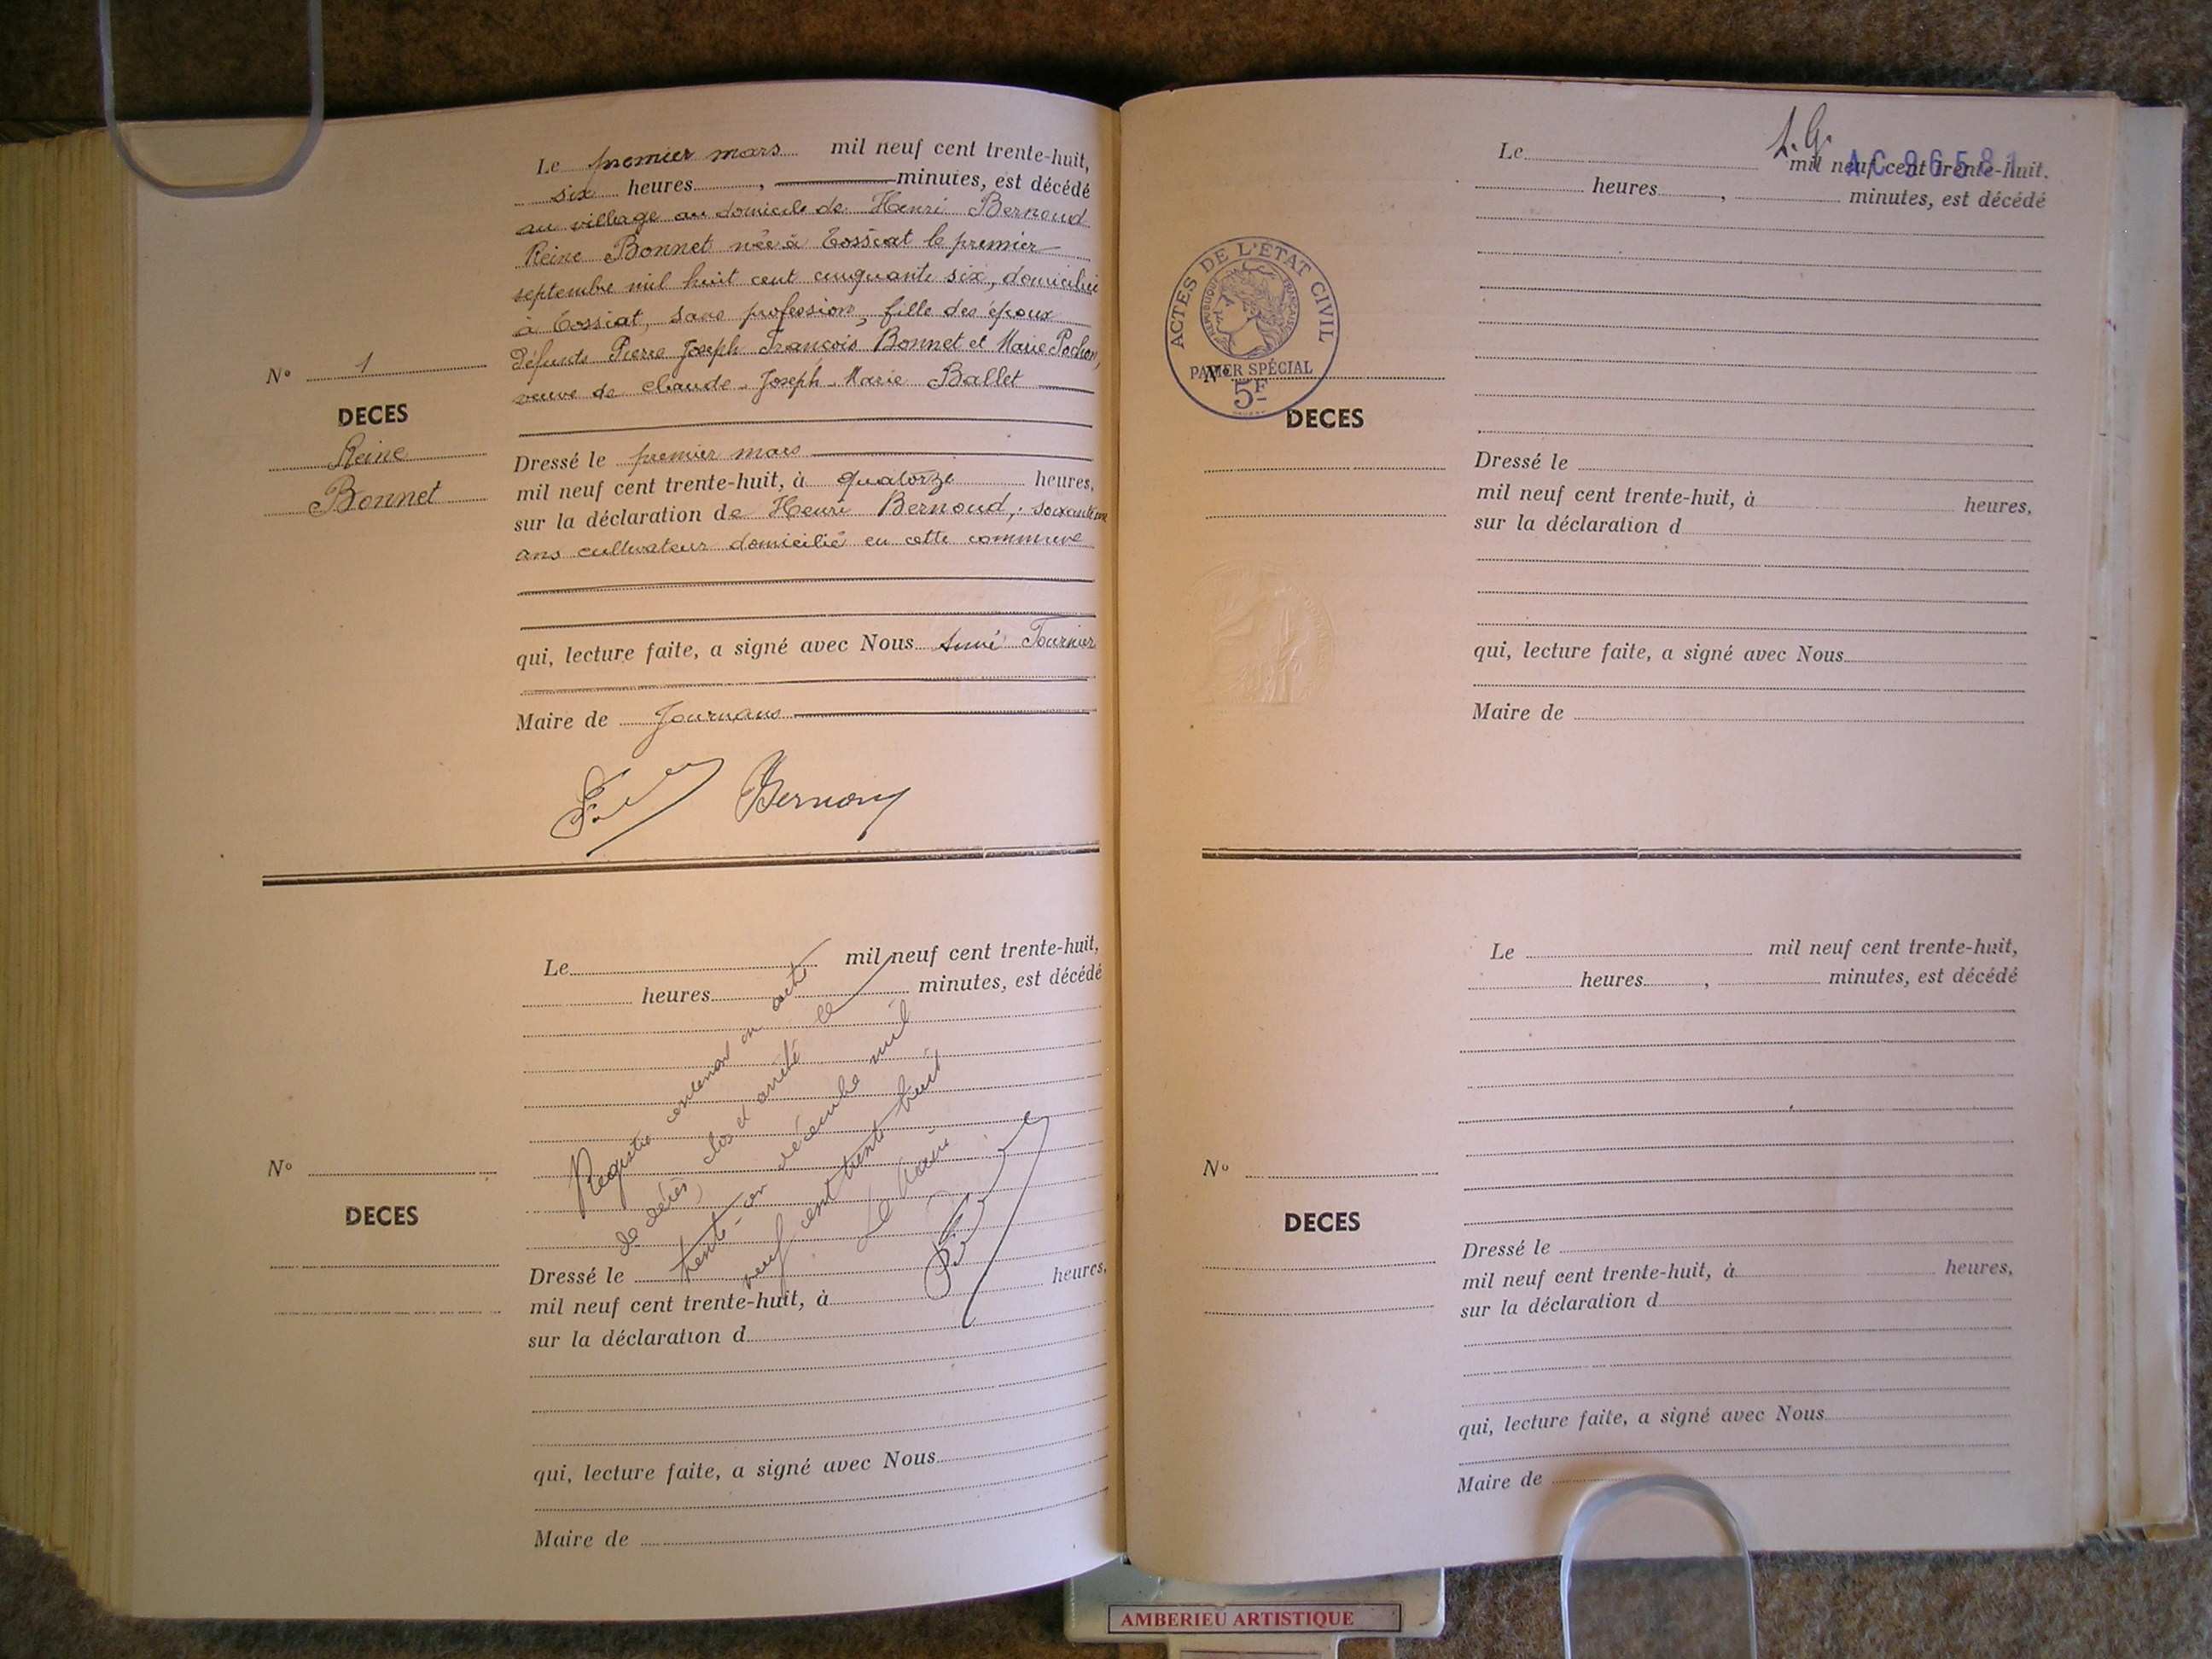 Le premier mars mil neuf cent trente-huit,
six heures, minutes, est décédé
au village au domicile de Henri Bernoud
Reine Bonnet née à Tossiat le premier
septembre mil huit cent cinquante six, domiciliée
à Tossiat, sans profession, fille des époux
défunts Pierre Joseph François Bonnet et Marie Pochon,
veuve de Claude-Joseph-Marie Ballet
N° 1
DECES
Reine
Bonnet
Dressé le premier mars
mil neuf cent trente-huit, à quatorze heures,
sur la déclaration de Henri Bernoud,
ans cultivateur domicilié en cette commune
qui, lecture faite, a signé avec Nous Aimé Tournier
Maire de Journans
Bernoud
Le mil neuf cent trente-huit,
heures minutes, est décédé
Registre contenant un acte
de décès, clos et arrêté ce
trente-un décembre mil
neuf cent trente huit
Le Maire
N°
DECES
Dressé le
mil neuf cent trente-huit, à heures,
sur la déclaration d
qui, lecture faite, a signé avec Nous
Maire de
AC 96581
Le mil neuf cent trente-huit.
heures, minutes, est décédé
ACTES DE L'ÉTAT CIVIL
RÉPUBLIQUE FRANÇAISE
PAPIER SPÉCIAL
5F
N°
DECES
Dressé le
mil neuf cent trente-huit, à heures,
sur la déclaration d
qui, lecture faite, a signé avec Nous
Maire de
Le mil neuf cent trente-huit,
heures, minutes, est décédé
N°
DECES
Dressé le
mil neuf cent trente-huit, à heures,
sur la déclaration d
qui, lecture faite, a signé avec Nous
Maire de
AMBERIEU ARTISTIQUE